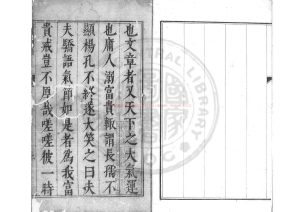 也文章者又天下之大氣運
也庸人溺富貴輙謂長孺不
顯楊孔不終遂大笑之曰夫
夫驕語氣節如是者為我富
貴戒豈不厚哉嗟嗟彼一時
LIBRARY